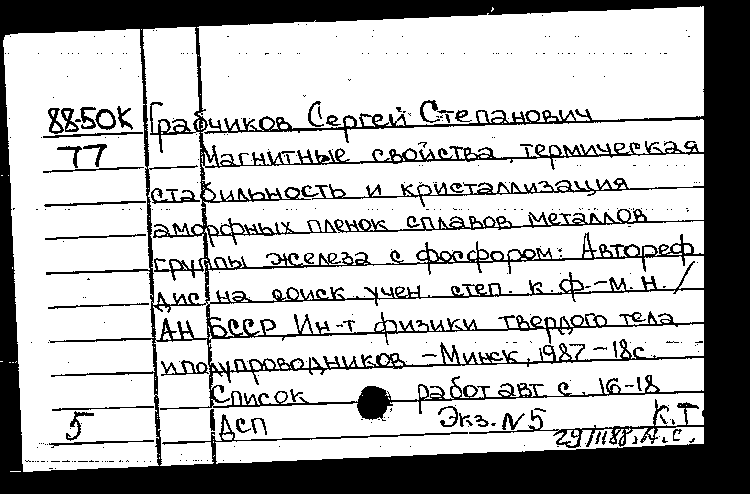 88-50К Грабчиков, Сергей Степанович
77 Магнитные свойства, термическая
стабильность и кристаллизация
аморфных пленок сплавов металлов
группы железа с фосфором: Автореф.
дис на соиск. учен. степ. к. ф.-м. н. /
АН БССР, Ин-т физики твердого тела
и полупроводников – Минск, 1987 – 18 с.
Список работ авт. с. 16-18
5 ДСП Экз. N 5 К.Т
29/II 88. А.С.